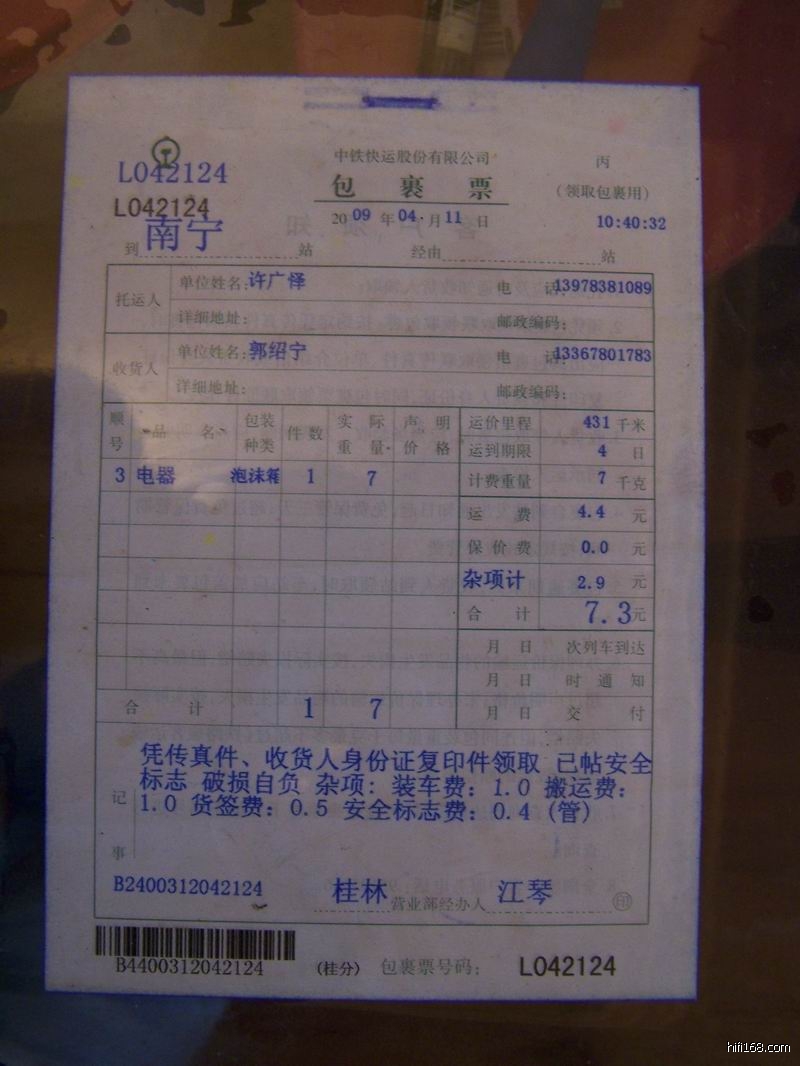 L042124 中铁快运股份有限公司 丙
L042124 包裹票 (领取包裹用)
2009年04月11日 10:40:32
到南宁站 经由 站
托运人 单位姓名:许广怿 电话:13978381089
详细地址: 邮政编码:
收货人 单位姓名:郭绍宁 电话:13367801783
详细地址: 邮政编码:
顺号 品名 包装种类 件数 实际重量 声明价格 运价里程 431 千米
运到期限 4 日
3 电器 泡沫箱 1 7 计费重量 7 千克
运费 4.4 元
保价费 0.0 元
杂项计 2.9 元
合计 7.3元
月 日 次列车到达
月 日 时通知
合计 1 7 月 日 交付
记事
凭传真件、收货人身份证复印件领取 已帖安全
标志 破损自负 杂项: 装车费: 1.0 搬运费:
1.0 货签费: 0.5 安全标志费: 0.4 (管)
B2400312042124 桂林营业部经办人 江琴 印
B4400312042124 (桂分) 包裹票号码: L042124
hifi168.com